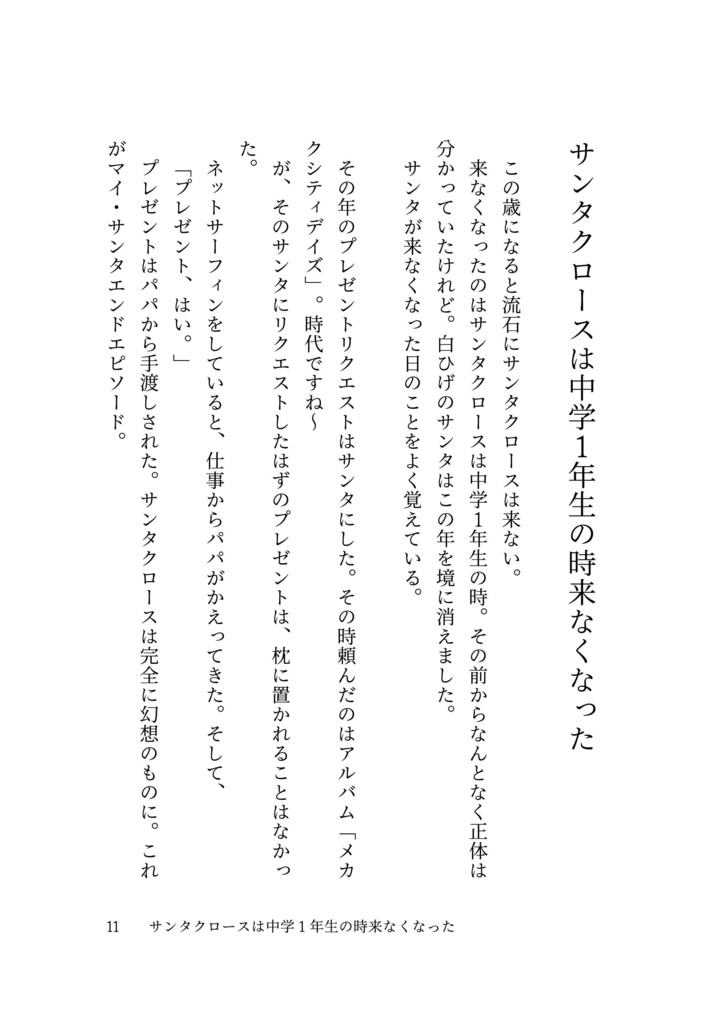 サンタクロースは中学1年生の時来なくなった
この歳になると流石にサンタクロースは来ない。
来なくなったのはサンタクロースは中学1年生の時。その前からなんとなく正体は
分かっていたけれど。白ひげのサンタはこの年を境に消えました。
サンタが来なくなった日のことをよく覚えている。
その年のプレゼントリクエストはサンタにした。その時頼んだのはアルバム「メカ
クシティデイズ」。時代ですね〜
が、そのサンタにリクエストしたはずのプレゼントは、枕に置かれることはなかっ
た。
ネットサーフィンをしていると、仕事からパパがかえってきた。そして、
「プレゼント、はい。」
プレゼントはパパから手渡しされた。サンタクロースは完全に幻想のものに。これ
がマイ・サンタエンドエピソード。
11 サンタクロースは中学1年生の時来なくなった